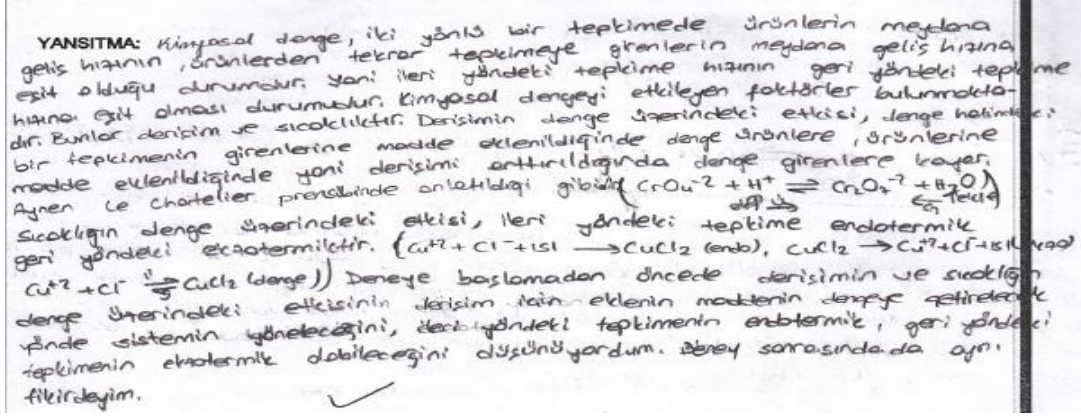 YANSITMA: Kimyasal denge, iki yönlü bir tepkimede ürünlerin meydana
geliş hızının, ürünlerden tekrar tepkimeye girenlerin meydana geliş hızına
eşit olduğu durumdur. Yani ileri yöndeki tepkime hızının geri yöndeki tepkime
hızına eşit olması durumudur. Kimyasal dengeyi etkileyen faktörler bulunmakta-
dır. Bunlar derişim ve sıcaklıktır. Derişimin denge üzerindeki etkisi, denge halindeki
bir tepkimenin girenlerine madde eklenildiğinde denge ürünlere, ürünlerine
madde eklenildiğinde yani derişimi arttırıldığında denge girenlere kayar.
Aynen Le Chartelier prensibinde anlatıldığı gibidir (CrO4-2 + H+ ⇌ Cr2O7-2 + H2O)
Sıcaklığın denge üzerindeki etkisi, ileri yöndeki tepkime endotermik
geri yöndeki ekzotermiktir. (Cu+2 + Cl- + ısı → CuCl2 (endo), CuCl2 → Cu+2 + Cl- + ısı
Cu+2 + Cl- ⇌ CuCl2 (denge)) Deneye başlamadan öncede derişimin ve sıcaklığın
denge üzerindeki etkisinin derişim için eklenin maddenin dengeye getirelecek
yönde sistemin yöneleceğini, ileri yöndeki tepkimenin endotermik, geri yöndeki
tepkimenin ekzotermik olabileceğini düşünüyordum. Deney sonrasında da aynı
fikirdeyim.